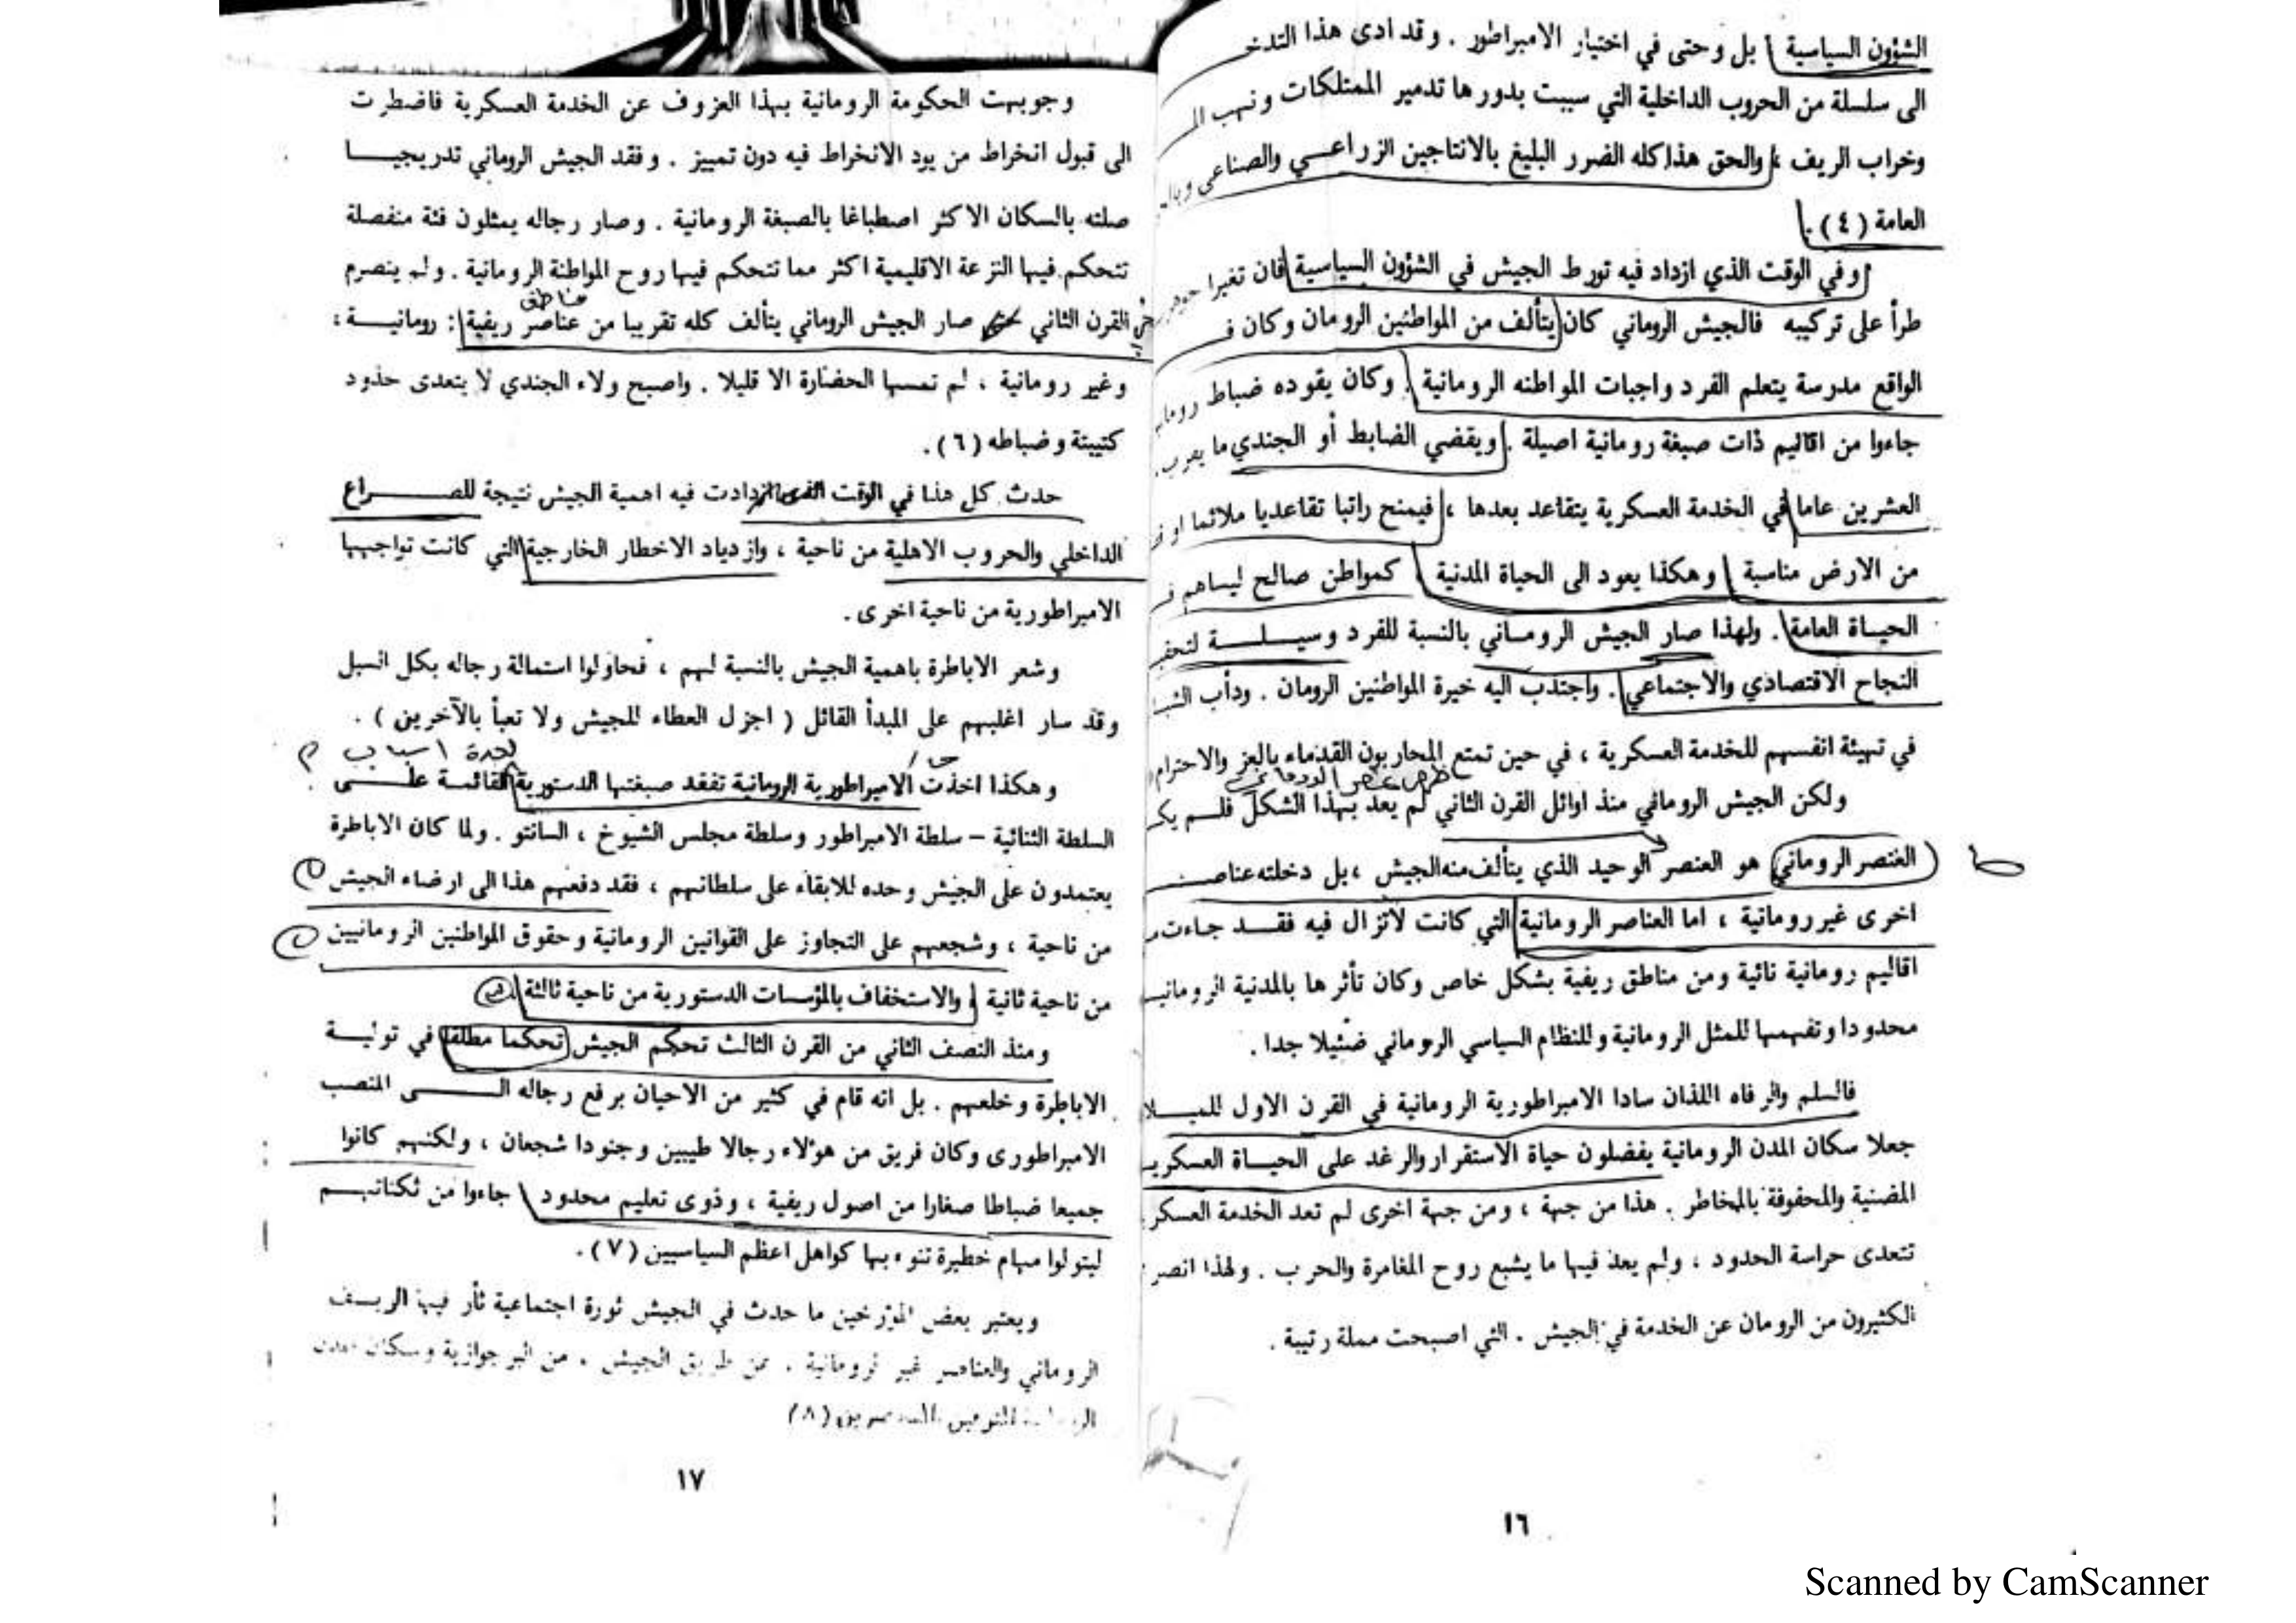 الشؤون السياسية بل وحتى في اختيار الامبراطور . وقد ادى هذا
الى سلسلة من الحروب الداخلية التي سببت بدورها تدمير الممتلكات ونهب
وخراب الريف ، والحق هذا كله الضرر البليغ بالانتاجين الزراعـــي والصناعي
العامة (٤) .
وفي الوقت الذي ازداد فيه تورط الجيش في الشؤون السياسية فان تغيرا
طرأ على تركيبه فالجيش الروماني كان يتألف من المواطنين الرومان وكان
الواقع مدرسة يتعلم الفرد واجبات المواطنه الرومانية . وكان يقوده ضباط
جاءوا من اقاليم ذات صبغة رومانية اصيلة . ويقضي الضابط أو الجندي ما
العشرين عاما في الخدمة العسكرية يتقاعد بعدها ، فيمنح راتبا تقاعديا ملائما او
من الارض مناسبة وهكذا يعود الى الحياة المدنية ، كمواطن صالح ليساهم
الحيـــاة العامة . ولهذا صار الجيش الرومــاني بالنسبة للفرد وسيـــلـــــة
النجاح الاقتصادي والاجتماعي . واجتذب اليه خيرة المواطنين الرومان . ودأب
في تهيئة انفسهم للخدمة العسكرية ، في حين تمتع المحاربون القدماء بالعز والاحترام
ولكن الجيش الروماني منذ اوائل القرن الثاني لم يعد بهذا الشكل فلـــم
العنصر الروماني هو العنصر الوحيد الذي يتألف منه الجيش ، بل دخلته
اخرى غير رومانية ، اما العناصر الرومانية التي كانت لاتزال فيه فقـــد جاءت
اقاليم رومانية نائية ومن مناطق ريفية بشكل خاص وكان تأثرها بالمدنية
محدودا وتفهمها للمثل الرومانية وللنظام السياسي الروماني ضئيلا جدا .
فالسلم والرفاه اللذان سادا الامبراطورية الرومانية في القرن الاول
جعلا سكان المدن الرومانية يفضلون حياة الاستقرار والرغد على الحيـــاة
المضنية والمحفوفة بالمخاطر . هذا من جهة ، ومن جهة اخرى لم تعد الخدمة
تتعدى حراسة الحدود ، ولم يعد فيها ما يشبع روح المغامرة والحرب . ولهذا
الكثيرون من الرومان عن الخدمة في الجيش . التي اصبحت مملة رتيبة .
١٦
وجوبهت الحكومة الرومانية بهذا العزوف عن الخدمة العسكرية فاضطرت
الى قبول انخراط من يود الانخراط فيه دون تمييز . وفقد الجيش الروماني تدريجيـــــا
صلته بالسكان الاكثر اصطباغا بالصبغة الرومانية . وصار رجاله يمثلون فئة منفصلة
تتحكم فيها النزعة الاقليمية اكثر مما تتحكم فيها روح المواطنة الرومانية . ولم ينصرم
مناطق
القرن الثاني صار الجيش الروماني يتألف كله تقريبا من عناصر ريفية : رومانيـــــة ،
وغير رومانية ، لم تمسها الحضارة الا قليلا . واصبح ولاء الجندي لا يتعدى حدود
كتيبتة وضباطه (٦) .
حدث كل هذا في الوقت الذي ازدادت فيه اهمية الجيش نتيجة للصـــــــراع
الداخلي والحروب الاهلية من ناحية ، وازدياد الاخطار الخارجية التي كانت تواجهها
الامبراطورية من ناحية اخرى .
وشعر الاباطرة باهمية الجيش بالنسبة لهم ، فحاولوا استمالة رجاله بكل السبل
وقد سار اغلبهم على المبدأ القائل ( اجزل العطاء للجيش ولا تعبأ بالآخرين ) .
لعدة اسباب ؟
وهكذا اخذت الامبراطورية الرومانية تفقد صبغتها الدستورية القائمـــة علـــــى
السلطة الثنائية – سلطة الامبراطور وسلطة مجلس الشيوخ ، السانتو . ولما كان الاباطرة
يعتمدون على الجيش وحده للابقاء على سلطانهم ، فقد دفعهم هذا الى ارضاء الجيش
من ناحية ، وشجعهم على التجاوز على القوانين الرومانية وحقوق المواطنين الرومانيين
من ناحية ثانية ، والاستخفاف بالمؤسسات الدستورية من ناحية ثالثة .
ومنذ النصف الثاني من القرن الثالث تحكم الجيش تحكما مطلقا في توليـــــة
الاباطرة وخلعهم . بل انه قام في كثير من الاحيان برفع رجاله الـــــــى المنصب
الامبراطورى وكان فريق من هؤلاء رجالا طيبين وجنودا شجعان ، ولكنهم كانوا
جميعا ضباطا صغارا من اصول ريفية ، وذوى تعليم محدود جاءوا من ثكناتهـــم
ليتولوا مهام خطيرة تنوء بها كواهل اعظم السياسيين (٧) .
ويعتبر بعض المؤرخين ما حدث في الجيش ثورة اجتماعية ثأر فيها الريـــف
الروماني والعناصر غير الرومانية . عن طريق الجيش . من البرجوازية وسكان المدن
(٨)
١٧
Scanned by CamScanner